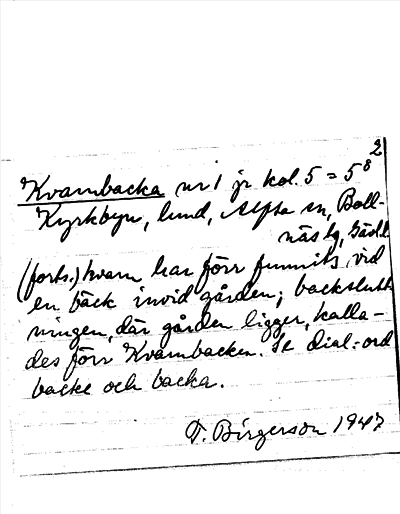 2
Kvarnbacka nr 1 jr kol. 5 = 5⁸
Kyrkbyn, hmd, Alfta sn, Boll-
näs tg, Gävlb
(forts.) kvarn har förr funnits vid
en bäck invid gården; backslutt
ningen, där gården ligger, kalla-
des förr Kvarnbacken. Se dial.-ord
backe och backa.
T. Birgerson 1947